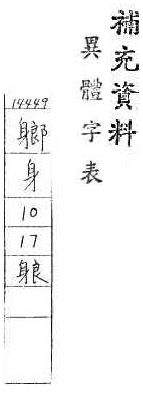 補充資料
異體字表
14449
身
10
17
躴